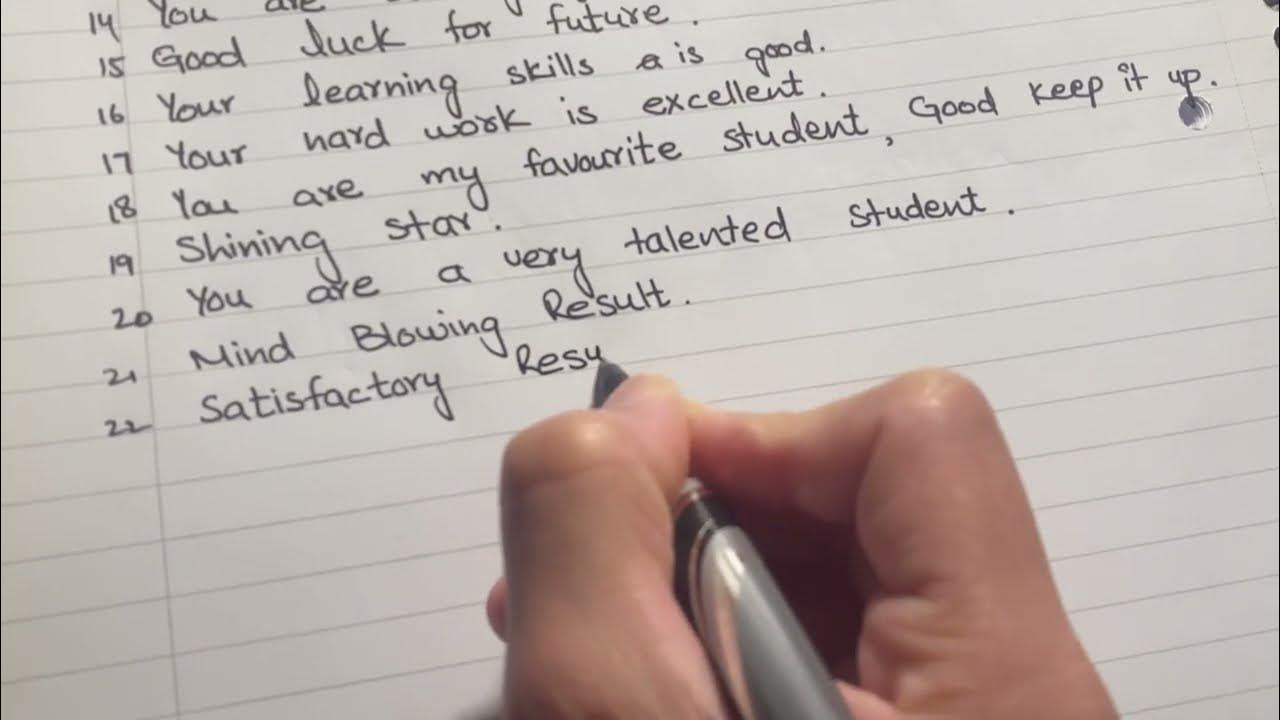 14 You are
15 Good luck for future.
16 Your learning skills is good.
17 Your hard work is excellent.
18 You are my favourite student, Good keep it up.
19 Shining star.
20 You are a very talented student.
21 Mind Blowing Result.
22 Satisfactory Resu